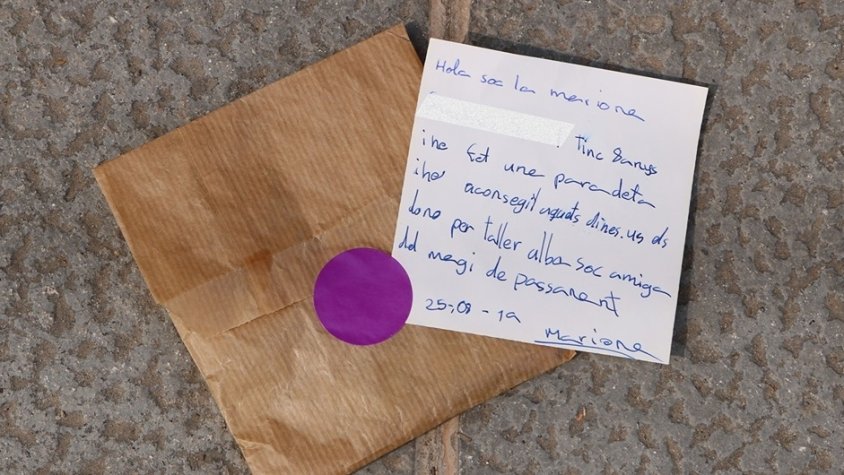 Hola soc la mariona
Tinc 8 anys
i he fet una paradeta
i he aconsegit aquets dines. us ds
dono per taller alba soc amiga
dd magi de passanant
25-08-19
Mariona